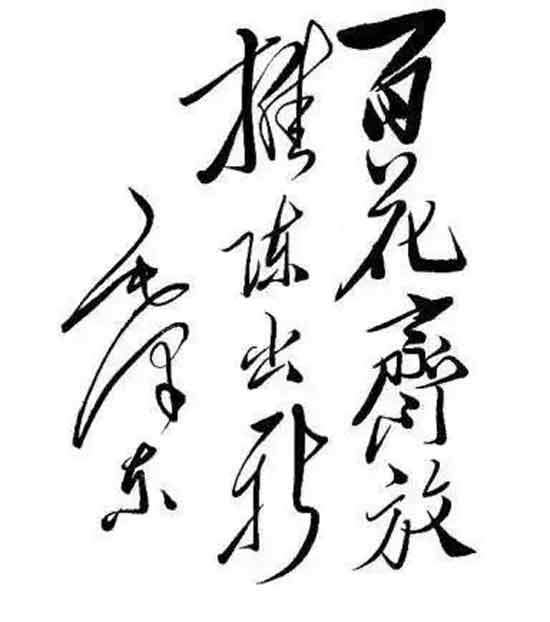 百花齊放
推陈出新
毛泽东